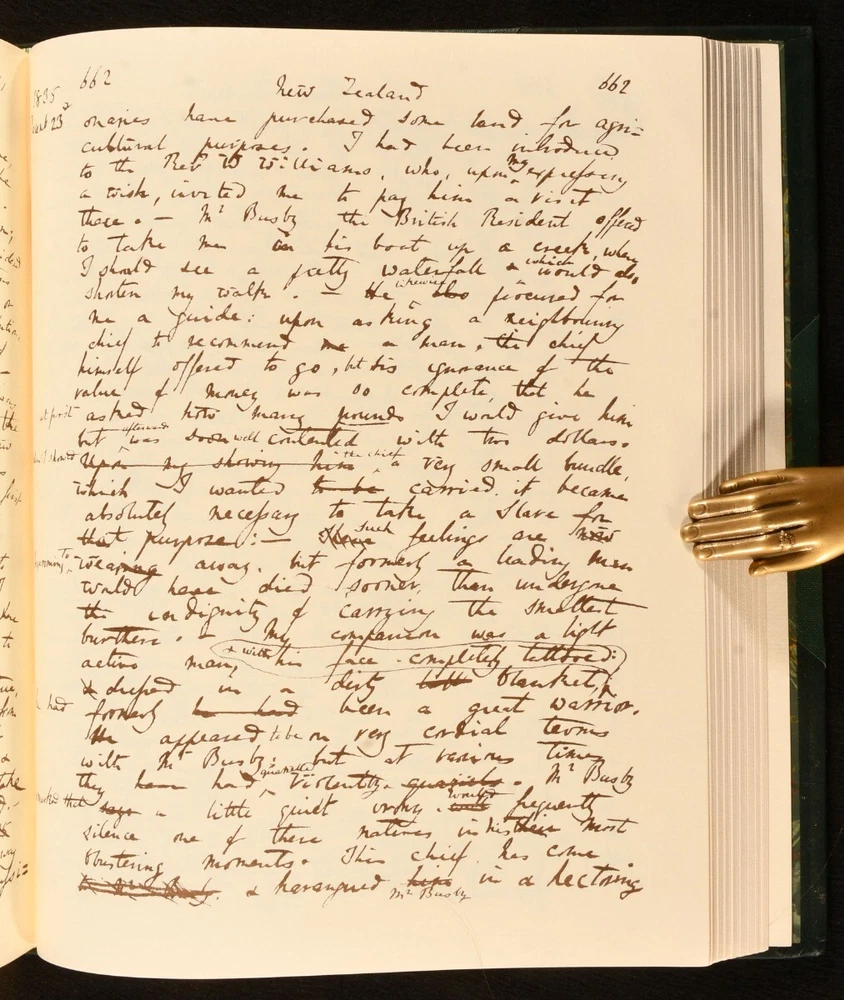 662 New Zealand 662
1835
onaries have purchased some land for agri=
cultural purposes. I had been introduced
to the Revd W Williams, who, upon my expressing
a wish, invited me to pay him a visit
there. — Mr Busby the British Resident offered
to take me in his boat up a creek, where
I should see a pretty waterfall & which would also
shorten my walk. — He likewise also procured for
me a guide: upon asking a neighbouring
chief to recommend me a man, the chief
himself offered to go, but his ignorance of the
value of money was so complete, that he
at first asked how many pounds I would give him
but afterwards was soon well contented with two dollars.
Upon my showing him the chief a very small bundle,
which I wanted to be carried, it became
absolutely necessary to take a Slave for
that purpose: — These such feelings are now
wearing away. but formerly a leading man
would have died sooner, than undergone
the indignity of carrying the smallest
burthen. — My companion was a light
active man, & with his face completely tattooed:
& dressed in a dirty blanket,
had formerly he had been a great warrior.
He appeared to be on very cordial terms
with Mr Busby; but at various times
they have had quarrelled violently quarrels. Mr Busby
remarked that says a little quiet irony would frequently
silence one of these natives in his their most
blustering moments. This chief has come
to Mr Busby. & harangued him Mr Busby in a hectoring